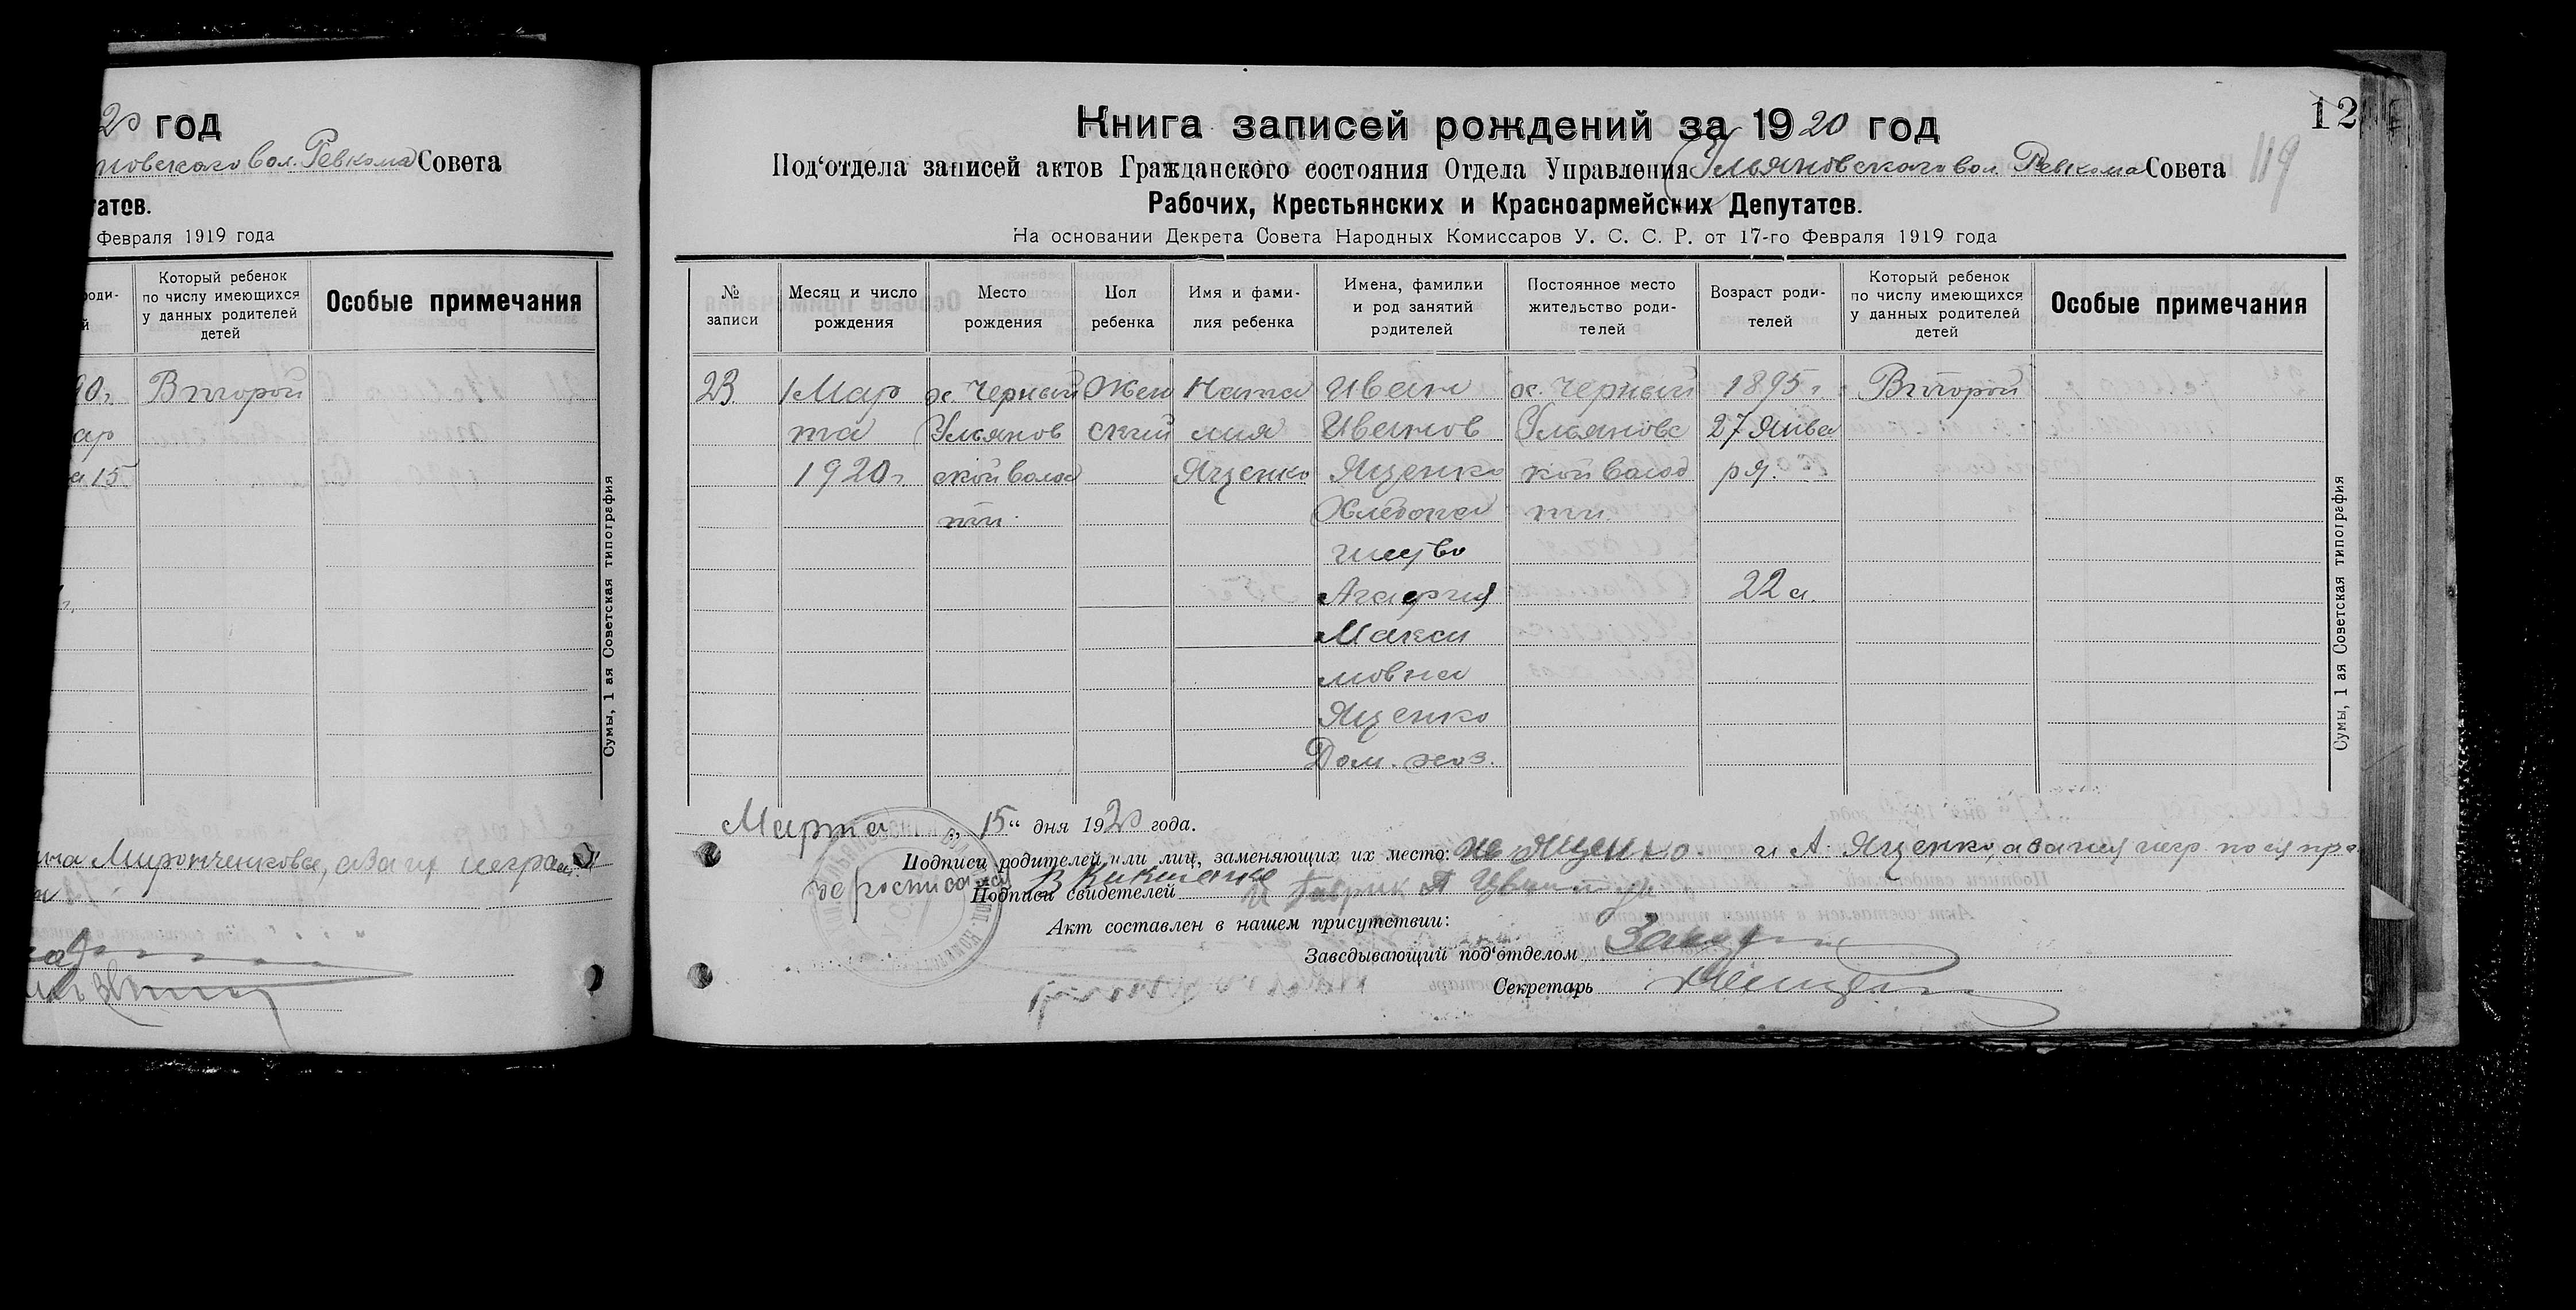 20 год
новского вол. Ревкома Совета
татов.
Февраля 1919 года
роди-
й
Который ребенок
по числу имеющихся
у данных родителей
детей
Особые примечания
Второй
15
Сумы, 1 ая Советская типография
Миронченкова,
12
119
Книга записей рождений за 1920 год
Под'отдела записей актов Гражданского состояния Отдела Управления Ульяновского вол. Ревкома Совета
Рабочих, Крестьянских и Красноармейских Депутатов.
На основании Декрета Совета Народных Комиссаров У. С. С. Р. от 17-го Февраля 1919 года
№
записи
Месяц и число
рождения
Место
рождения
Пол
ребенка
Имя и фами-
лия ребенка
Имена, фамилии
и род занятий
родителей
Постоянное место
жительство роди-
телей
Возраст роди-
телей
Который ребенок
по числу имеющихся
у данных родителей
детей
Особые примечания
23.
1 Мар
та
1920 г.
х. Черный
Ульянов
ской волос
ти.
Жен
ский
Ната
лия
Яценко
Иван
Иванов
Яценко
Хлебопа
шество
Агафия
Макси
мовна
Яценко
Дом. хоз.
х. Черный
Ульяновс
кой волос
ти.
1895 г.
27 Янва
ря.
22 л.
Второй
Сумы, 1 ая Советская типография
Марта „15“ дня 1920 года.
Подписи родителей или лиц, заменяющих их место: Яценко. и А. Яценко, а за неё негр. по её про
Подписи свидетелей
Акт составлен в нашем присутствии:
Заведывающий под'отделом
Секретарь